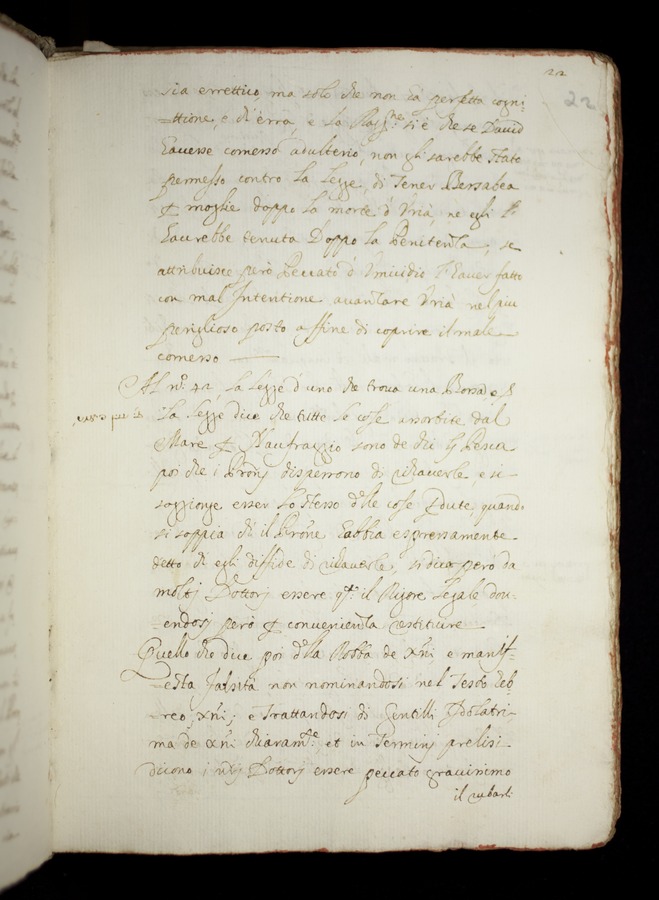 22
22
sia errettico, ma solo che non ha perfetta cogni-
-ttione, e ch'erra, e la Rag.ne si è che se David
havesse comesso adulterio, non gli sarebbe stato
permesso contro la legge, di tener Bersabea
moglie doppo la morte d'Uria, ne egli l'
haurebbe tenuta doppo la Penitenza, se
attribuisce però Peccato d'Omicidio l'haver fatto
con mal Intentione avanzare Uria nel piu
periglioso posto affine di coprire il male
comesso
Al n.o 42, la legge d'uno che trova una Borsa e
la legge dice che tutte le cose assorbite dal
Mare Naufraggio sono de chi li Pesca
poi che i Pròni disperrono di rihaverle e si
soggionge esser lo stesso delle cose Pdute, quando
si soppia ch il Pròne habbia espressamente
detto ch egli diffide di rihaverle, si dice però da
molti Dottori essere il Rigore legale dou-
-endosi però convenienza restituire
Quello che dice poi della Robba de Xñi e manif-
-esta falsità non nominandosi nel Testo heb-
-reo, Xñi; e trattandosi di Gentilli Idolatri-
ma de Xñi chiaram.te et in Terminj prelisi
dicono i Dottori essere peccato gravissimo
il rubarli